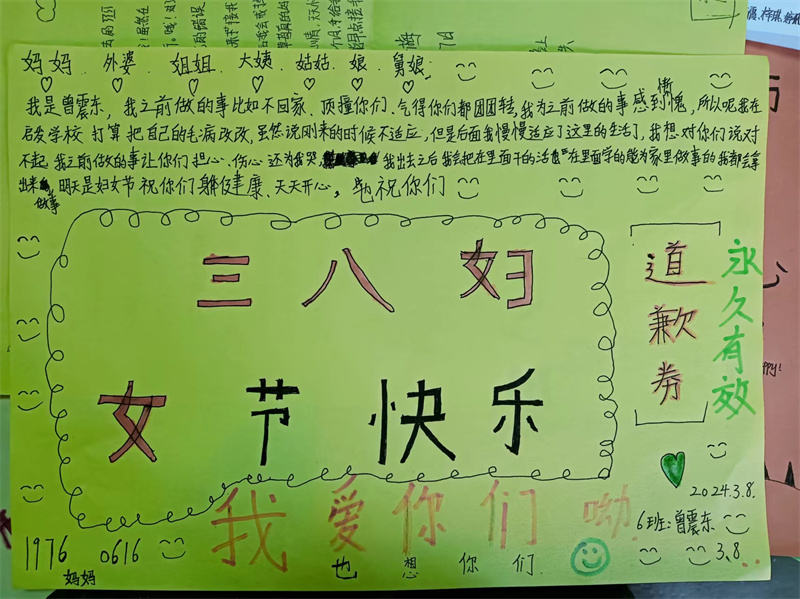 妈妈、外婆、姐姐、大姨、姑姑、娘、舅娘
我是曾震东，我之前做的事比如不回家、顶撞你们、气得你们都团团转，我为之前做的事感到惭愧，所以呢我在
启发学校打算把自己的毛病改改，虽然说刚来的时候不适应，但是后面我慢慢适应了这里的生活了，我想对你们说对
不起，我之前做的事让你们担心、伤心还为我哭，我出去之后我会把在里面干的活，在里面学的能为家里做事的我都会拿
出来做事，明天是妇女节祝你们身体健康、天天开心，也祝你们
三八妇
女节快乐
道歉券
永久有效
我爱你们呦
也想你们
2024.3.8.
6班：曾震东
3.8..
1976 0616
妈妈